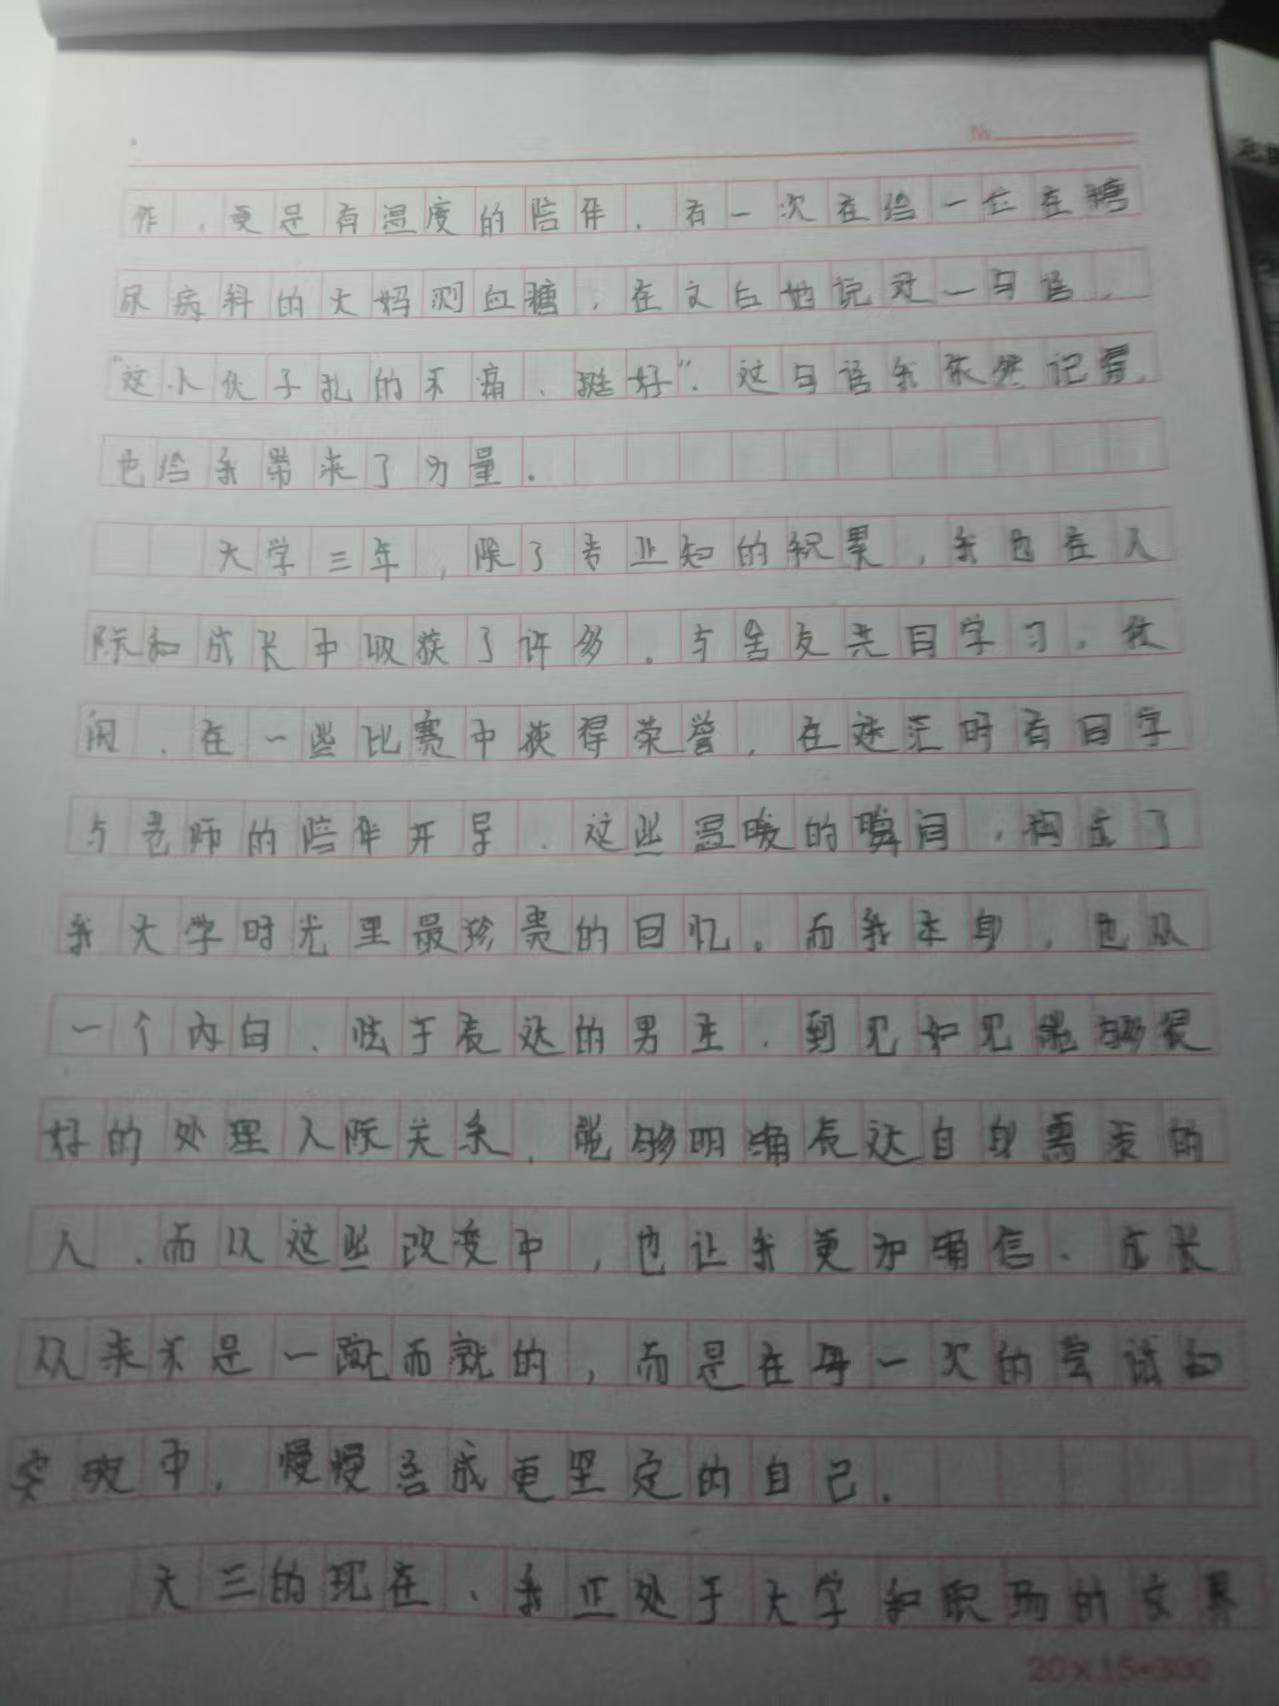 No
作，更是有温度的陪伴．有一次在给一位在糖
尿病科的大妈测血糖，在文后她说过一句话，
“这小伙子扎的不痛、挺好”．这句话我依然记着，
也给我带来了力量．
大学三年，除了专业知的积累，我也在人
际和成长中收获了许多．与舍友共同学习，
闲．在一些比赛中获得荣誉，在迷茫时有同学
与老师的陪伴开导．这些温暖的瞬间，构成了
我大学时光里最珍贵的回忆。而我本身，也从
一个内向、怯于表达的男生．到见如见能够很
好的处理人际关系．能够明确表达自身需求的
人．而从这些改变中，也让我更加确信．成长
从来不是一蹴而就的，而是在每一次的尝试和
突破中．慢慢
成更坚定的自己．
大三的现在、我正处于大学和职场的交界
20×15=300